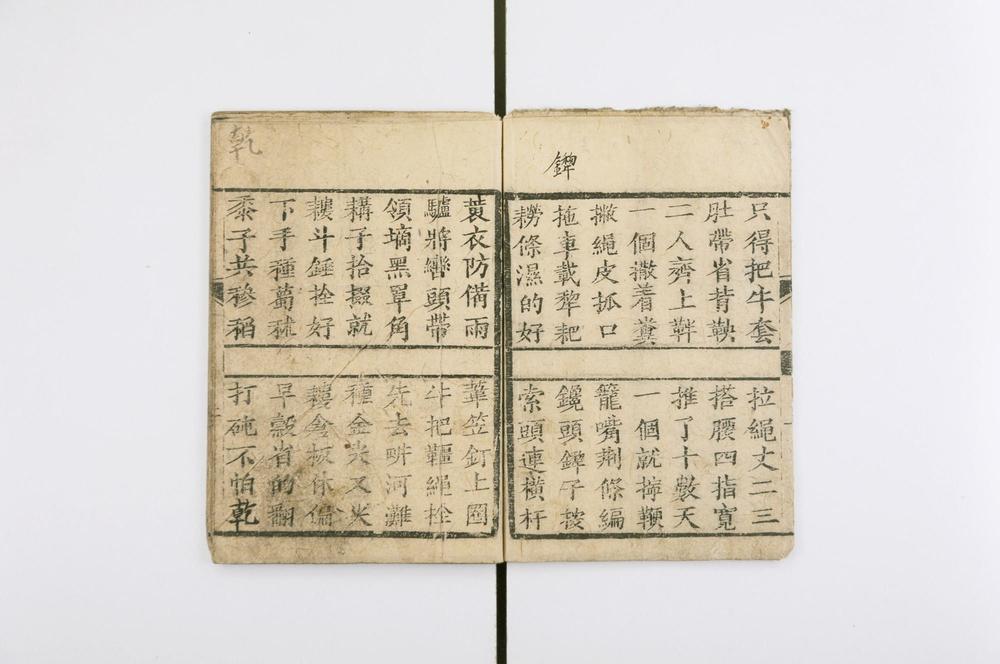 鏵
只得把牛套
拉繩丈二三
肚帶省背鞅
搭腰四指寬
二人齊上
推了十數天
一個撒着糞
一個就捧鞭
撇繩皮抓口
籠嘴荊條編
拖車載犂耙
鑱頭鏵子
耮條濕的好
索頭連橫杆
蓑衣防備雨
葦笠釘上圈
驢將轡頭帶
牛把韁繩拴
領墒黑單角
先去畊河灘
耩子拾掇就
種金尖又尖
耬斗錘拴好
耬倉板休偏
下手種葛秫
早穀省的翻
黍子共穇稻
打砘不怕乾
乾